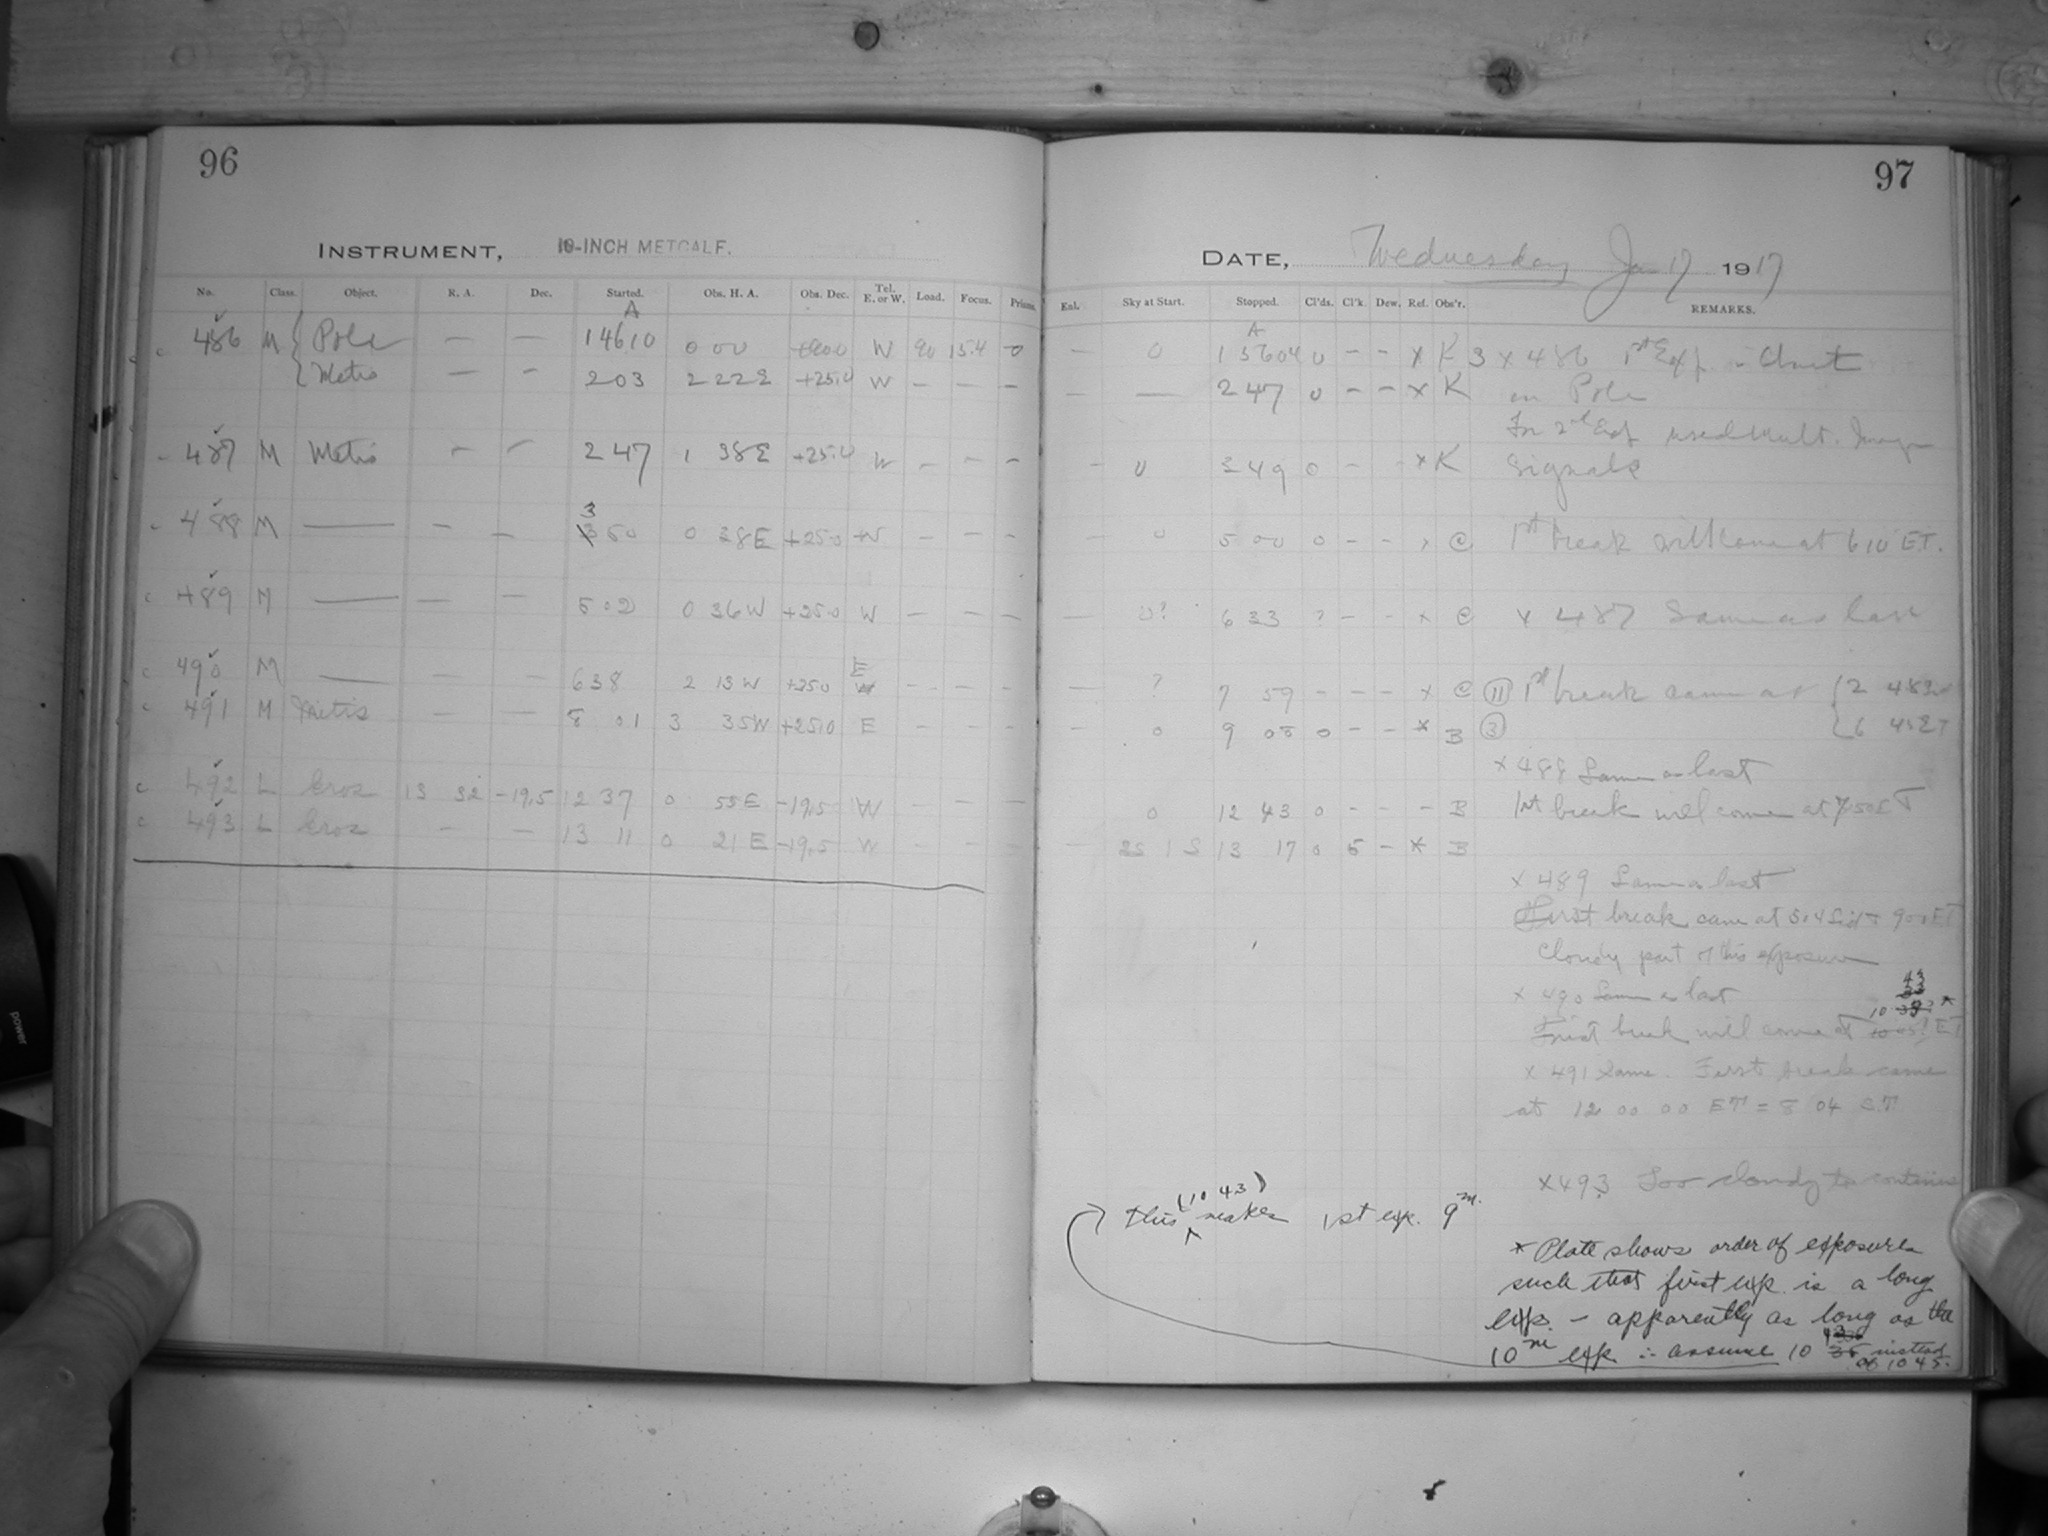 96
INSTRUMENT, 10-INCH METCALF.
No. Class. Object. R. A. Dec. Started. Obs. H. A. Obs. Dec. Tel. E. or W. Load. Focus. Prisms.
A
486 M Pole — — 14610 0 00 W 90 15.4
Metis — — 203 2 22 E +25.0 W — — —
487 M Metis — — 2 47 1 38E +25.0 W — — —
3
488 M — — — 50 0 38E +25.0 W — — —
489 M — — — 5 02 0 36W +25.0 W — — —
E
490 M — — — 638 2 13W +25.0 W — — —
491 M Metis — — 8 01 3 35W +25.0 E — — —
492 L Eros 13 32 -19.5 12 37 0 55E -19.5 W — — —
493 L Eros — — 13 11 0 21 E -19.5 W — — —
97
DATE, Wednesday Jan 17 1917
Enl. Sky at Start. Stopped. Cl'ds. Cl'k. Dew. Ref. Obs'r. REMARKS.
A
— 0 15604 0 - - x K 3 x 486 1st Exp.
— — 2 47 0 - - x K on Pole
In 2nd Exp used Mult. Image
- 0 3 49 0 - - x K Signals
- 0 5 00 0 - - C 1st break will come at 610 E.T.
— 0? 6 33 ? - - x C x 487 Same as last
— ? 7 59 - - - x C (11) 1st break came at
- 0 9 05 0 - - * B (3)
x 488 Same as last
0 12 43 0 - - - B 1st break will come at 750 E T
— 2S 1 S 13 17 0 5 - * B
x 489 Same as last
First break came at
Cloudy part of this exposure
x 490 Same as last
43
10
First break will come at
x 491 Same. First break came
at 12 00 00 ET = 8 04 S.T
x493 Too cloudy to continue
(10 43)
This makes 1st exp. 9m.
* Plate shows order of exposures
such that first exp. is a long
exp. - apparently as long as the
10m exp. ∴ assume 10 instead
of 10 45.
power